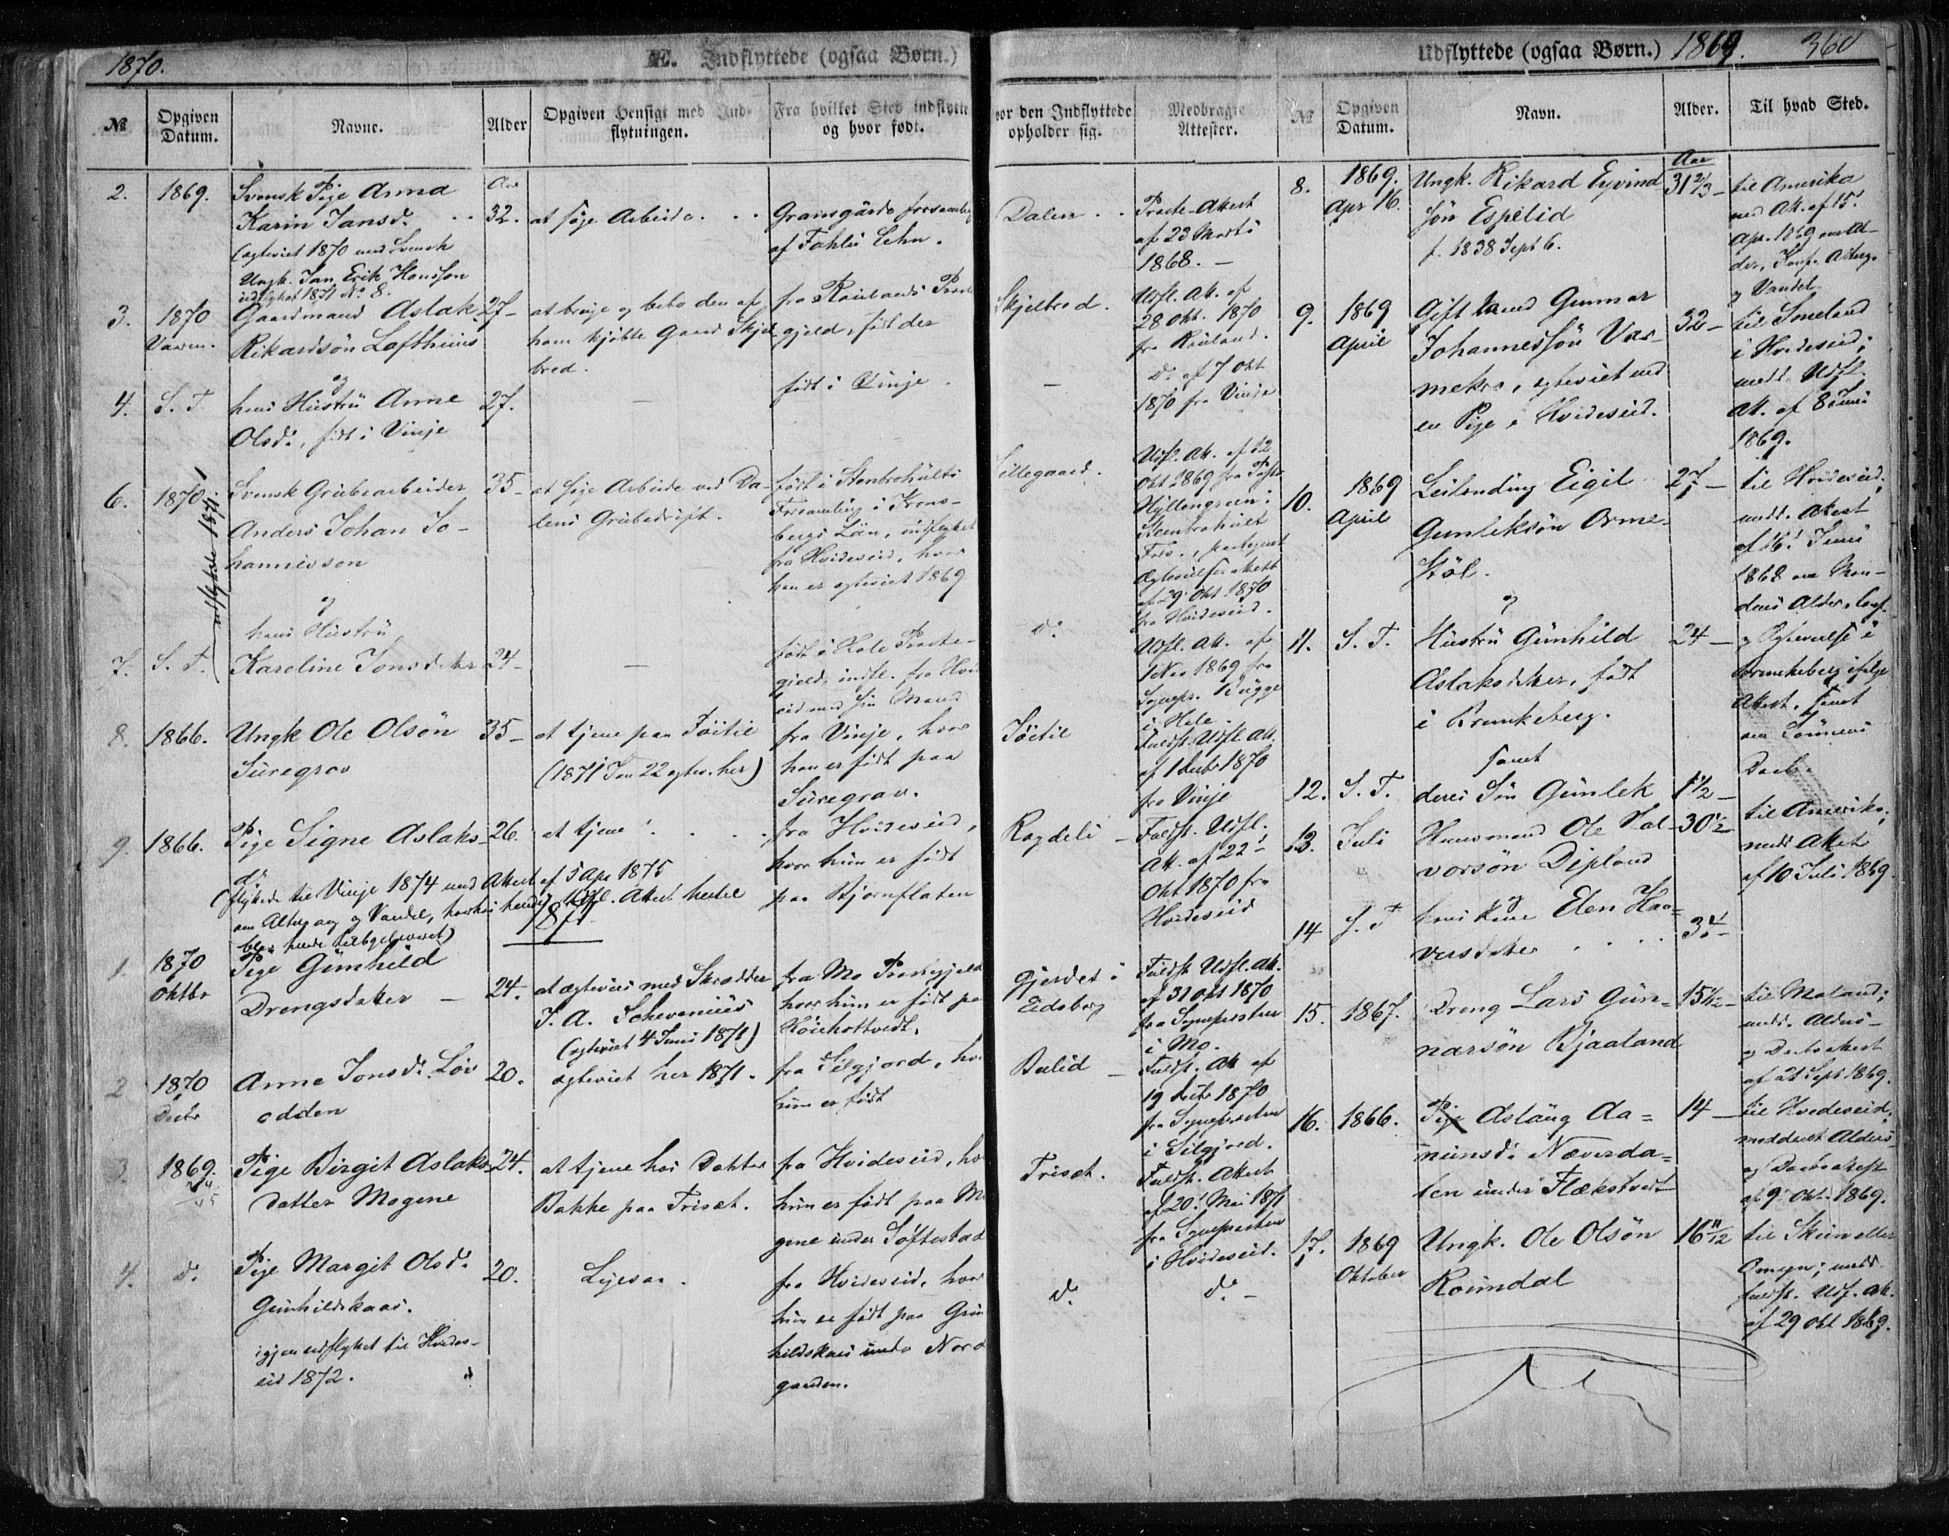 1870.
Æ. Indflyttede (ogsaa Børn.)
Udflyttede (ogsaa Børn.) 1869. 360
№
Opgiven Datum.
Navne.
Alder
Opgiven Hensigt med Ind-
flytningen.
Fra hvilket Sted indflytt
og hvor født.
vor den Indflyttede
opholder sig.
Medbragte
Attester.
№
Opgiven
Datum.
Navn.
Alder.
Til hvad Sted.
2. 1869. Svensk Pige Anna
Karin Jansd.
(egteviet 1870 med Svensk
Ungk. Jan Erik Hansson
udflyttet 1871 No 8.
Aar
32.
at søge Arbeide.
af Fahlu Lehn.
Dalen
Præste Attest
af 23 Marts
1868.
3. 1870
Gaardmand Aslak
Rikardsön Lofthuus
27
at bruge og bebo den af
ham kjöbte Gaard Skjel
bred.
fra Raulands Præste
gjeld, født der
Skjelbred.
Udfl. Att. af
28 Okt. 1870
fra Rauland.
4. S. T.
og
hans Hustru Anne
Olsd., födt i Vinje
27.
født i Vinje
D. af 7 Okt
1870 fra Vinje
6. 1870.
udflyttede 1871
Svensk Grubearbeider
Anders Johan Jo-
hannesson
35
at söge Arbeide ved Da-
lens Grubedrift.
født i Stenbrohults
Forsamling i Krono-
bergs Län, indflyttet
fra Hvideseid, hvor
han er egteviet 1869
Lillegaard.
Udfl. Att. af 12
Okt 1869 fra
Stenbrohult
af 29 Okt 1870
fra Hvideseid.
7. S. T.
og
hans Hustru
Karoline Jonsdatter
24
født i Hole Præste-
gjeld, indfl. fra Hvid
eid med sin Mand
d.
Udfl. Att. af
1 Nov 1869 fra
Sognepr. Bugge
i Hole
8. 1866.
Ungk Ole Olsön
Suregrav
35
at tjene paa Töitil
(1871 Jan 22 egtev. her)
fra Vinje, hvor
han er født paa
Suregrav.
Töitil
Fuldst. Udfl. Att.
af 1 Decbr 1870
fra Vinje
9. 1866.
Pige Signe Aslaks-
d.
26.
at tjene
(flyttede til Vinje 1874 med Attest af 5 Apr 1875
om Altergang og Vandel,
blev hende tilbageleveret)
fra Hvideseid,
hvor hun er født
paa Bjørnflaten
Rogdeli
Fuldst. Udfl.
Att. af 22
Okt 1870 fra
Hvideseid
1871.
1. 1870
Oktbr
Pige Gunhild
Drengsdatter
24.
at egtevies med Skrædder
J. A. Schevenius
(egteviet 4 Juni 1871)
fra Mo Præstegjeld
hvor hun er født pa
Gjerdet i
Eidsborg
Fuldst. Udfl. Att.
af 31 Okt 1870
fra Sognepresten
i Mo.
2 1870
Decbr
Anne Jonsd. Löv
odden
20.
egteviet her 1871.
fra Silgjord, hv
hun er født
Berlid
Fuldst. Att af
19 Decbr 1870
fra Sognepresten
i Silgjord.
3. 1869.
Pige Birgit Aslaks
datter Mogene
24.
at tjene hos Doktor
Bakke paa Triset.
fra Hvideseid, hv
hun er født paa Mo
gene under Löftestad
Triset.
Fuldst. Attest
af 20 Mai 1871
fra Sognepresten
i Hvideseid.
4. d.
Pige Margit Olsd.
Gunhildskaas.
igjen udflyttet til Hvides-
eid 1872.
20.
Ligesaa.
fra Hvideseid, hvor
hun er født paa Gun
hildskaas under Nord
gaarden.
d.
d.
8. 1869.
Apr 16.
Ungk. Rikard Eyvind
sön Espelid
f. 1838 Sept 6.
Aar
31 2/3
til Amerika
med Att. af 15.
Apr. 1869 om Al-
der, Konf. Alterg.
og Vandel
9. 1869
April
Gift Mand Gunnar
Johannessön Var-
mekra, egteviet med
en Pige i Hvideseid.
32
til Smeland
i Hvideseid;
medd. Udfl.
Att. af 8 Juni
1869.
10. 1869
April
Leilending Eigil
Gunleksön Orme-
stöl.
27
til Hvideseid,
medd. Attest
af 16. Juni
1868 om Man-
dens Alder, Conf.
og Egtevielse i
Brunkeberg
Attest, samt
om Sönnens
Daab.
11. S. T.
og
Hustru Gunhild
Aslaksdatter, født
i Brunkeberg.
24
12. S. T.
samt
deres Sön Gunlek
1 1/2
13. Juli
Huusmand Ole Hal-
vorsön Dipland
30 1/2
til Amerika;
medd. Attest
af 10 Juli 1869
14 S. T
og
hans Kone Elen Haa-
versdatter
34
15. 1867.
Dreng Lars Gun-
narsön Bjaaland
15
til Moland;
medd. Alders-
og Daabsattest
af 21 Sept 1869.
16. 1866.
Pige Aslaug Aa-
munsd. Næverda-
len under Flækstveit
14
til Hvideseid,
meddeelt Alders
og Daabsattest
af 9 Okt 1869.
17. 1869
Oktober
Ungk. Ole Olsön
Roundal
16 11/12
til Skien eller
Omegn; medd.
fuldst. Udf. Att.
af 29 Okt 1869.